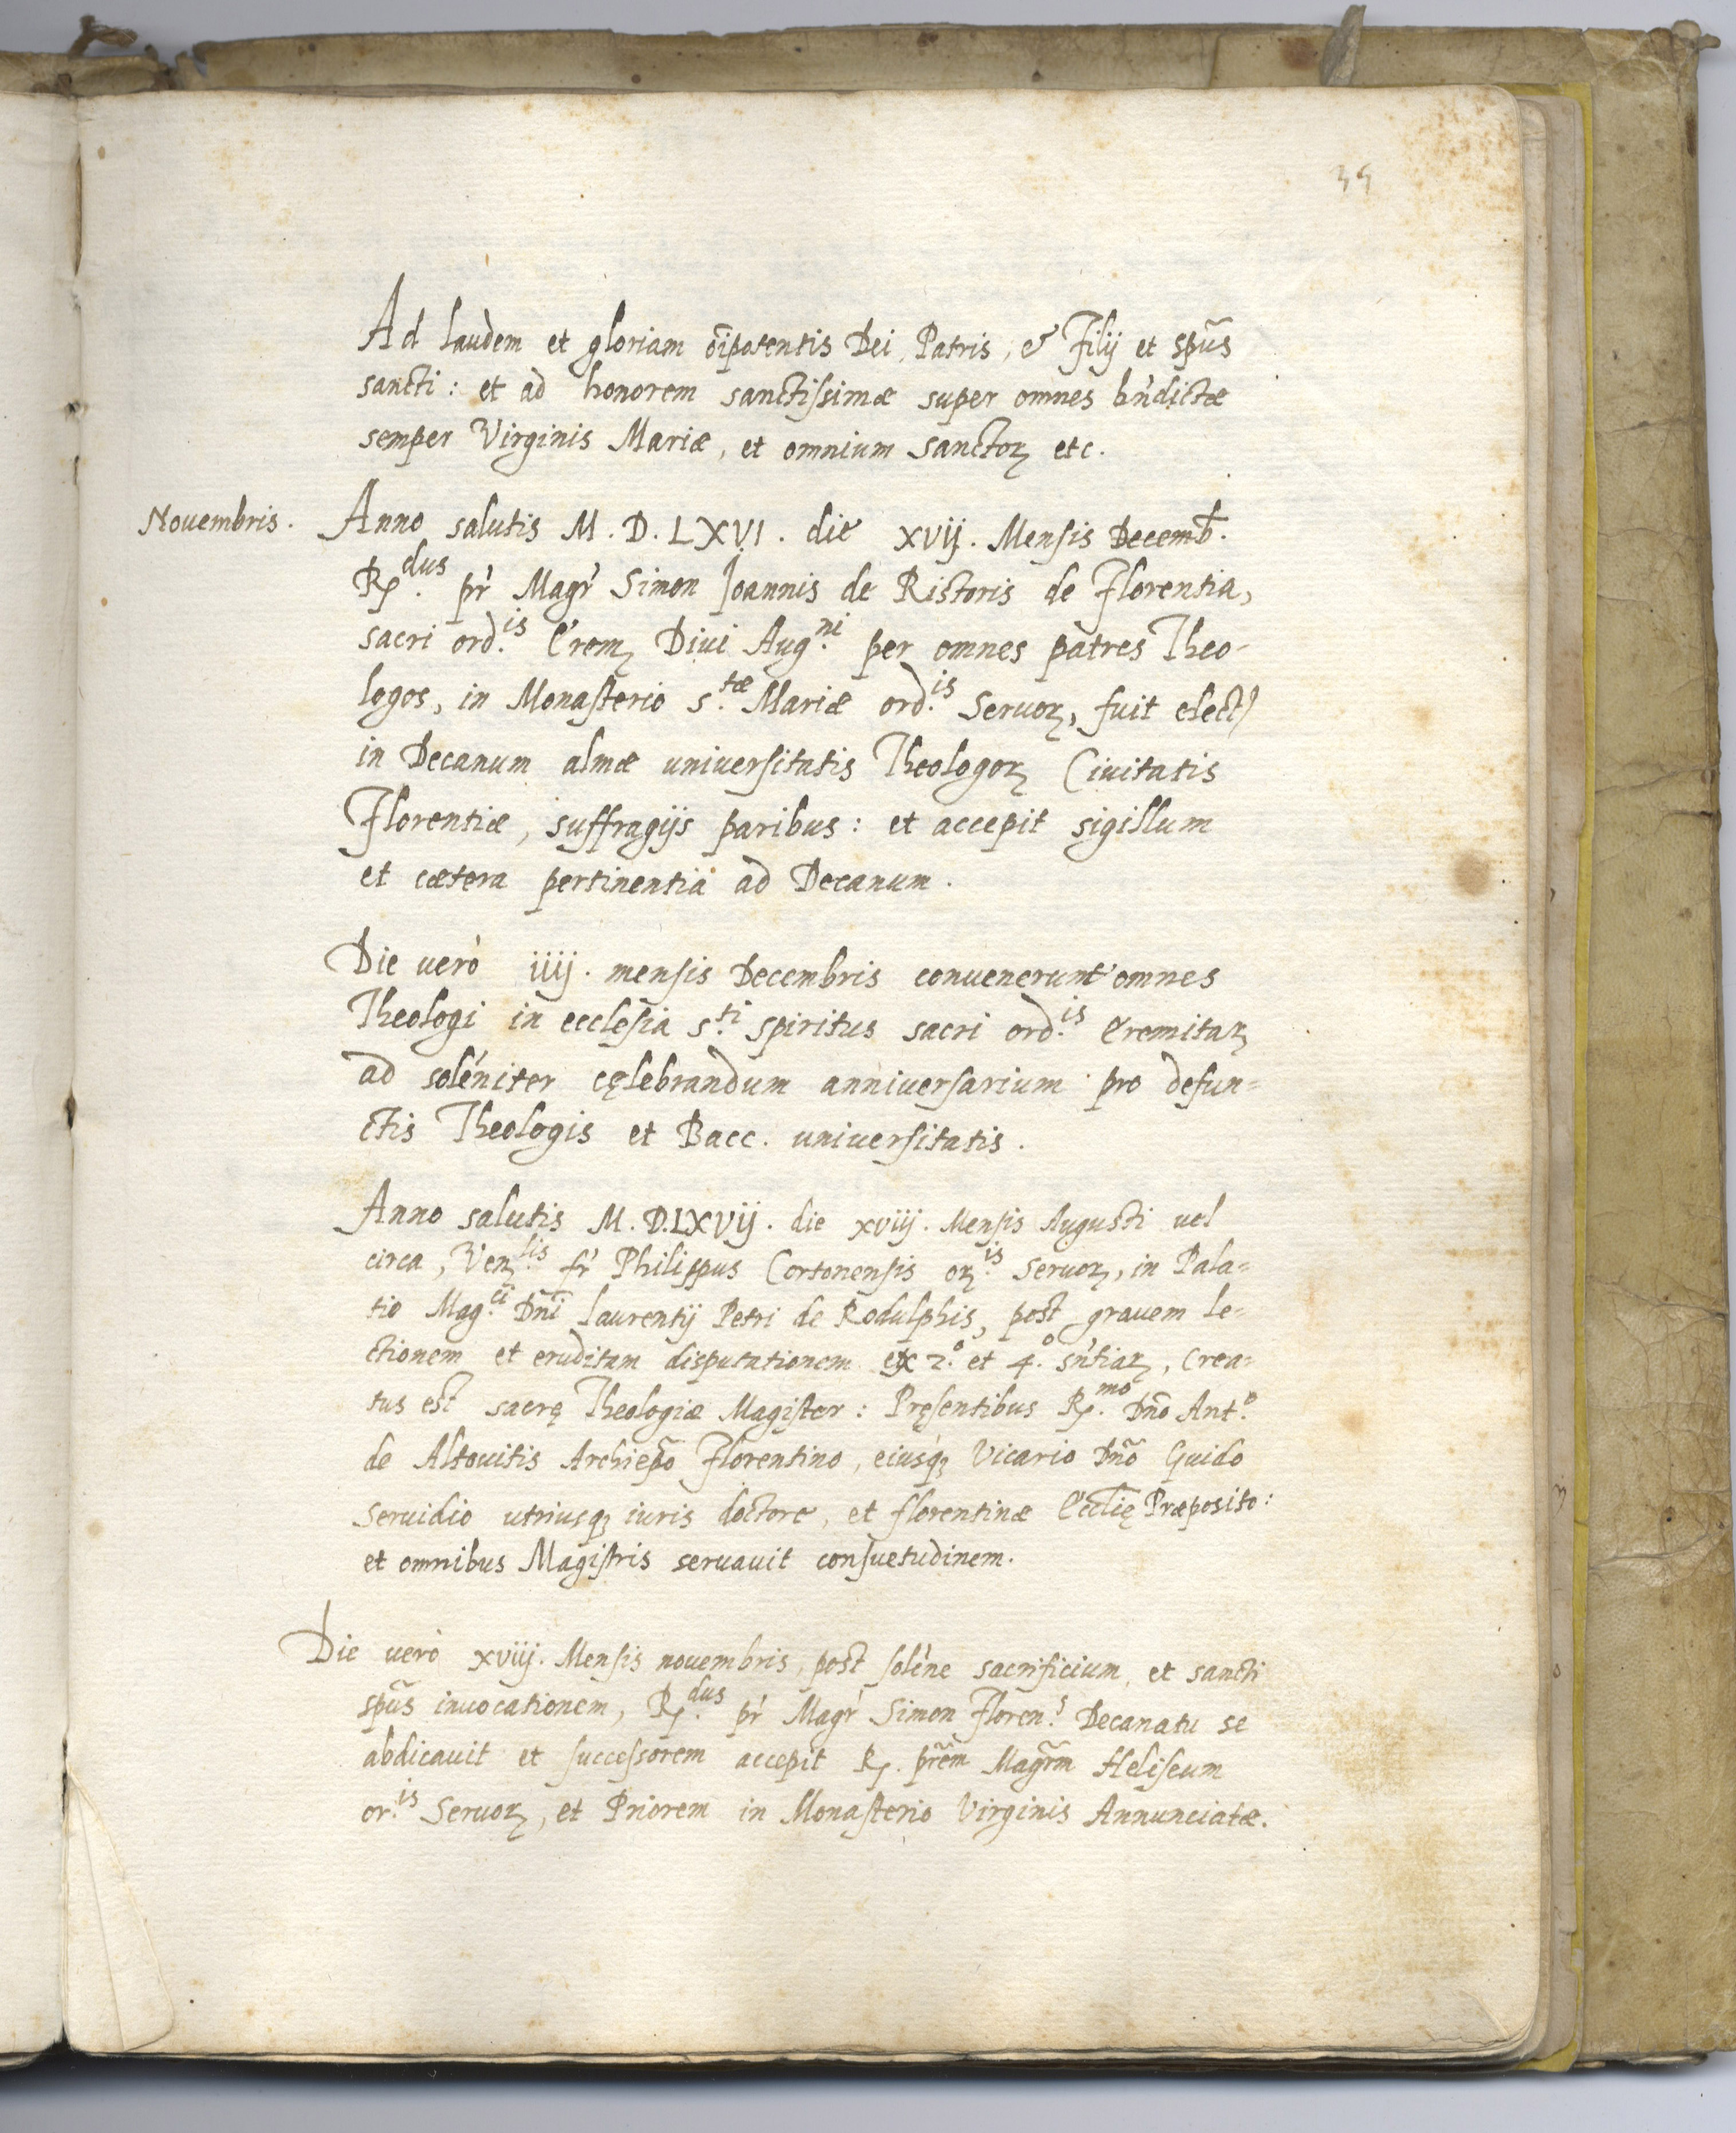 39
Ad laudem et gloriam oīpotentis Dei Patris, & Filij et spūs
sancti: et ad honorem sanctissimæ super omnes bn̄dictæ
semper Virginis Mariæ, et omnium sanctoꝝ etc.
Nouembris. Anno salutis M.D.LXVI. die xvij. Mensis Decemb̄.
R.dus pr̄ Magr̄ Simon Joannis de Ristoris de Florentia,
sacri ord.is Erem. Diui Aug.ni per omnes patres Theo-
logos, in Monasterio s.tæ Mariæ ord.is Seruoꝝ, fuit electꝰ
in Decanum almæ uniuersitatis Theologoꝝ Ciuitatis
Florentiæ, suffragijs paribus: et accepit sigillum
et cætera pertinentia ad Decanum.
Die uerò iiij. mensis Decembris conuenerunt omnes
Theologi in ecclesia s.ti spiritus sacri ord.is Eremitaꝝ
ad solēniter cęlebrandum anniuersarium pro defun=
ctis Theologis et Bacc. uniuersitatis.
Anno salutis M.D.LXVij. die xviij. Mensis Augusti uel
circa, Ven.lis fr̄ Philippus Cortonensis oꝝ.is Seruoꝝ, in Pala=
tio Mag.ci Dn̄i Laurentij Petri de Rodulphis, post grauem le=
ctionem et eruditam disputationem ex 2.o et 4.o sn̄tiaꝝ, crea=
tus est sacrę Theologiæ Magister: Pręsentibus R.mo Dn̄o Ant.o
de Altouitis Archiep̄o Florentino, eiusqꝫ Vicario Dn̄o Guido
Seruidio utriusqꝫ iuris doctore, et florentinæ Ecclīę Præposito:
et omnibus Magistris seruauit consuetudinem.
Die uerò xviij. Mensis nouembris, post solēne sacrificium, et sancti
spūs inuocationem, R.dus pr̄ Magr̄ Simon Floren.s Decanatu se
abdicauit et successorem accepit R. pr̄em Magr̄m Heliseum
or.is Seruoꝝ, et Priorem in Monasterio Virginis Annunciatæ.